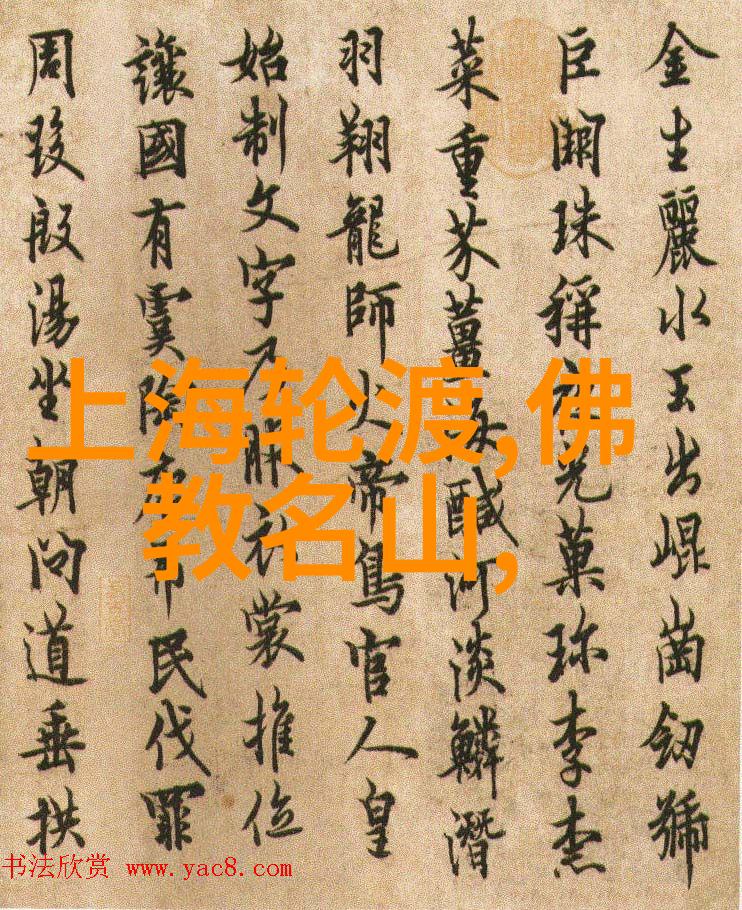 金生麗水玉出崐崗劒號
巨闕珠稱夜光菓珎李柰
菜重芥薑海醎河淡鱗潛
羽翔龍師火帝鳥官人皇
始制文字乃服衣裳推位
讓國有虞陶唐弔民伐罪
周發殷湯坐朝問道垂拱
上海轮渡,佛
教名山,
书法欣赏 www.yac8.com